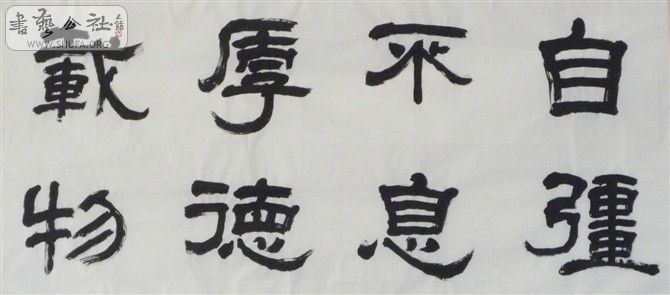 自彊
不息
厚德
載物
書藝公社
WWW.SHUFA.ORG